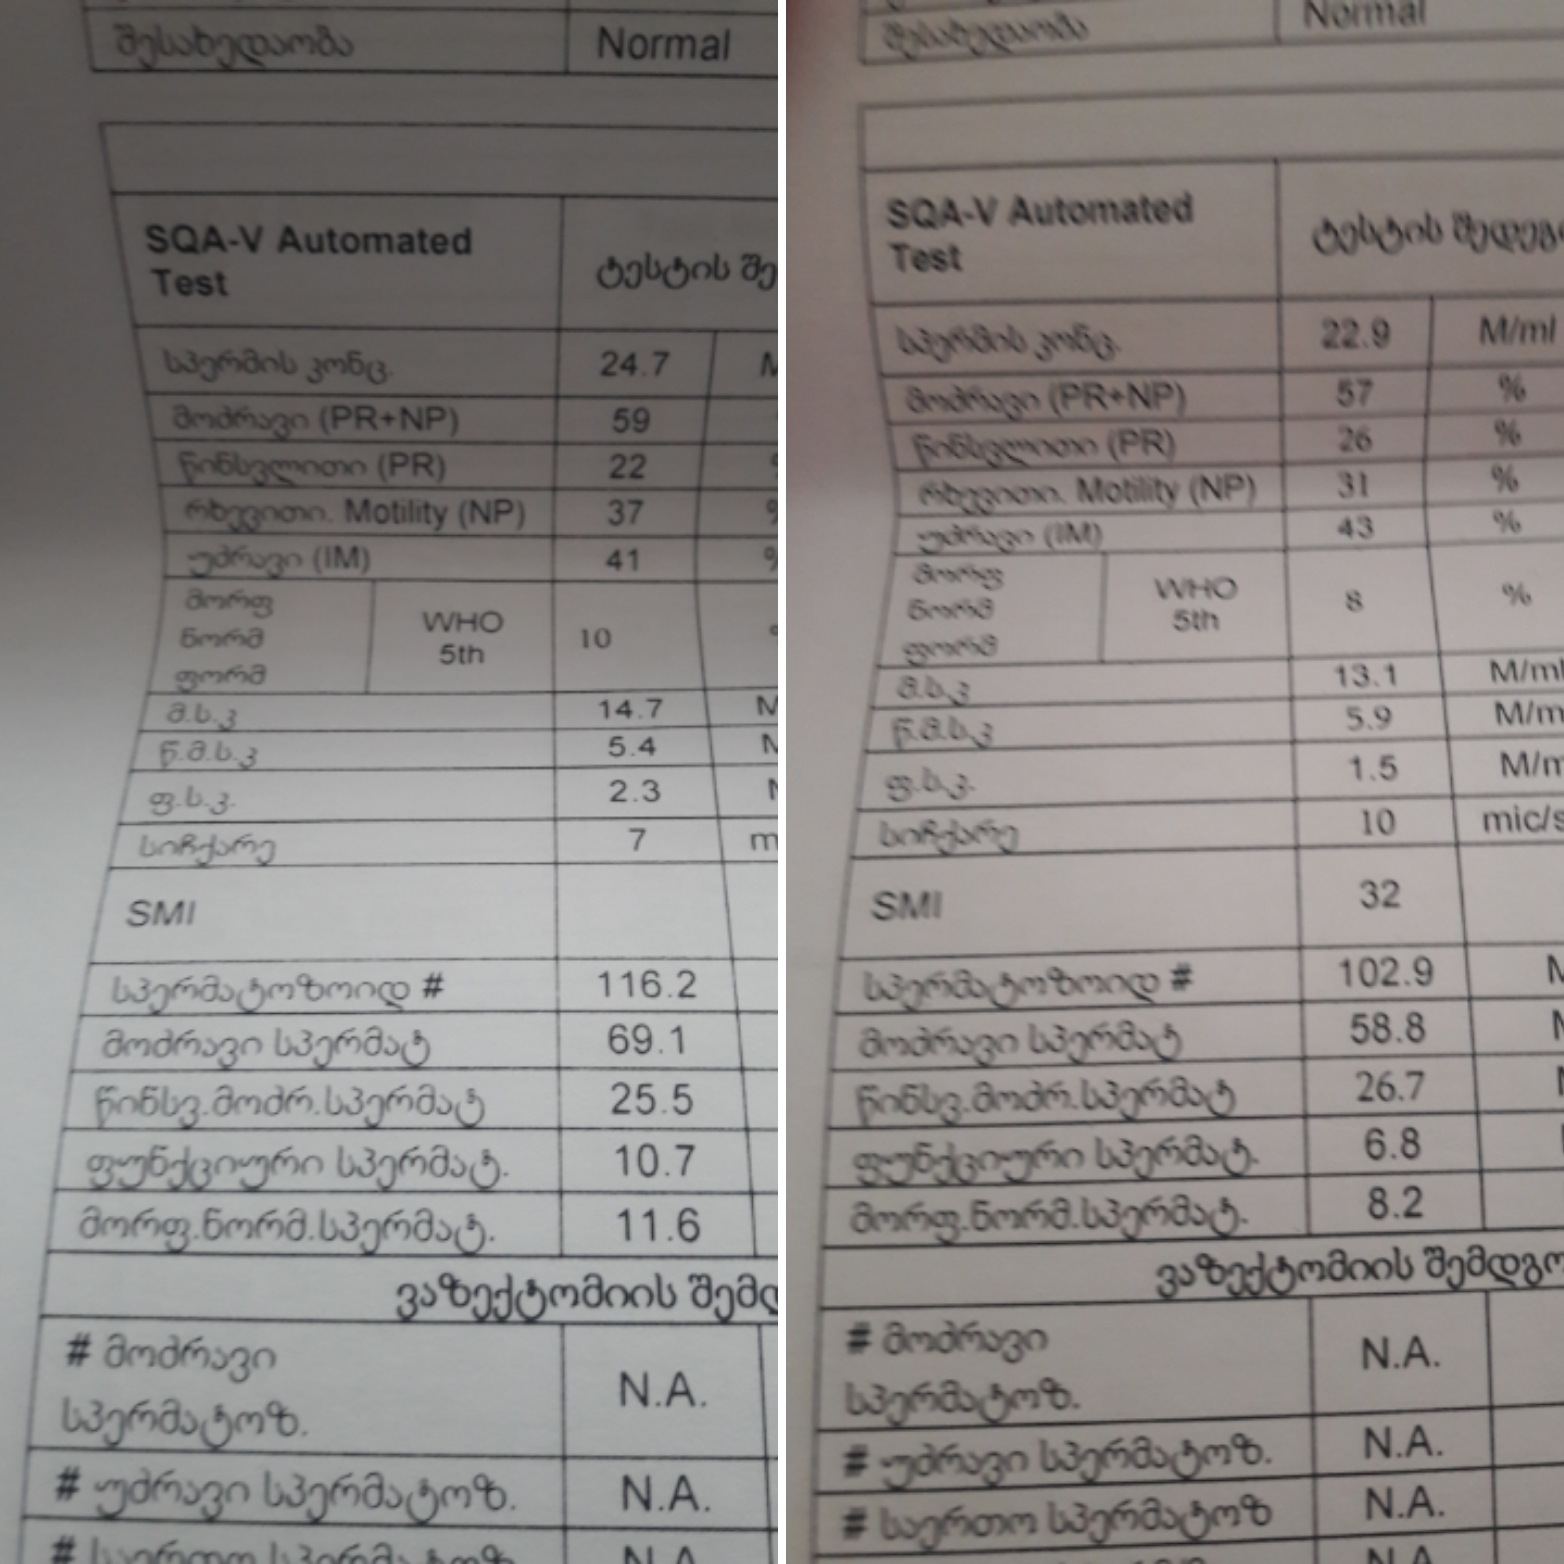 შესახედაობა Normal
SQA-V Automated
Test
ტესტის შე
სპერმის კონც. 24.7
მოძრავი (PR+NP) 59
წინსვლითი (PR) 22
რხევითი. Motility (NP) 37
უძრავი (IM) 41 %
მორფ
ნორმ
ფორმ
WHO
5th
10
მ.ს.კ 14.7 M
წ.მ.ს.კ 5.4
ფ.ს.კ. 2.3
სიჩქარე 7 m
SMI
სპერმატოზოიდ # 116.2
მოძრავი სპერმატ 69.1
წინსვ.მოძრ.სპერმატ 25.5
ფუნქციური სპერმატ. 10.7
მორფ.ნორმ.სპერმატ. 11.6
ვაზექტომიის შემდ
# მოძრავი
სპერმატოზ.
N.A.
# უძრავი სპერმატოზ. N.A.
# საერთო სპერმატოზ N.A.
შესახედაობა Normal
SQA-V Automated
Test
ტესტის შედეგ
სპერმის კონც. 22.9 M/ml
მოძრავი (PR+NP) 57 %
წინსვლითი (PR) 26 %
რხევითი. Motility (NP) 31 %
უძრავი (IM) 43 %
მორფ
ნორმ
ფორმ
WHO
5th
8 %
მ.ს.კ 13.1 M/ml
წ.მ.ს.კ 5.9 M/m
ფ.ს.კ. 1.5 M/m
სიჩქარე 10 mic/s
SMI 32
სპერმატოზოიდ # 102.9
მოძრავი სპერმატ 58.8
წინსვ.მოძრ.სპერმატ 26.7
ფუნქციური სპერმატ. 6.8
მორფ.ნორმ.სპერმატ. 8.2
ვაზექტომიის შემდგო
# მოძრავი
სპერმატოზ.
N.A.
# უძრავი სპერმატოზ. N.A.
# საერთო სპერმატოზ N.A.
N.A.